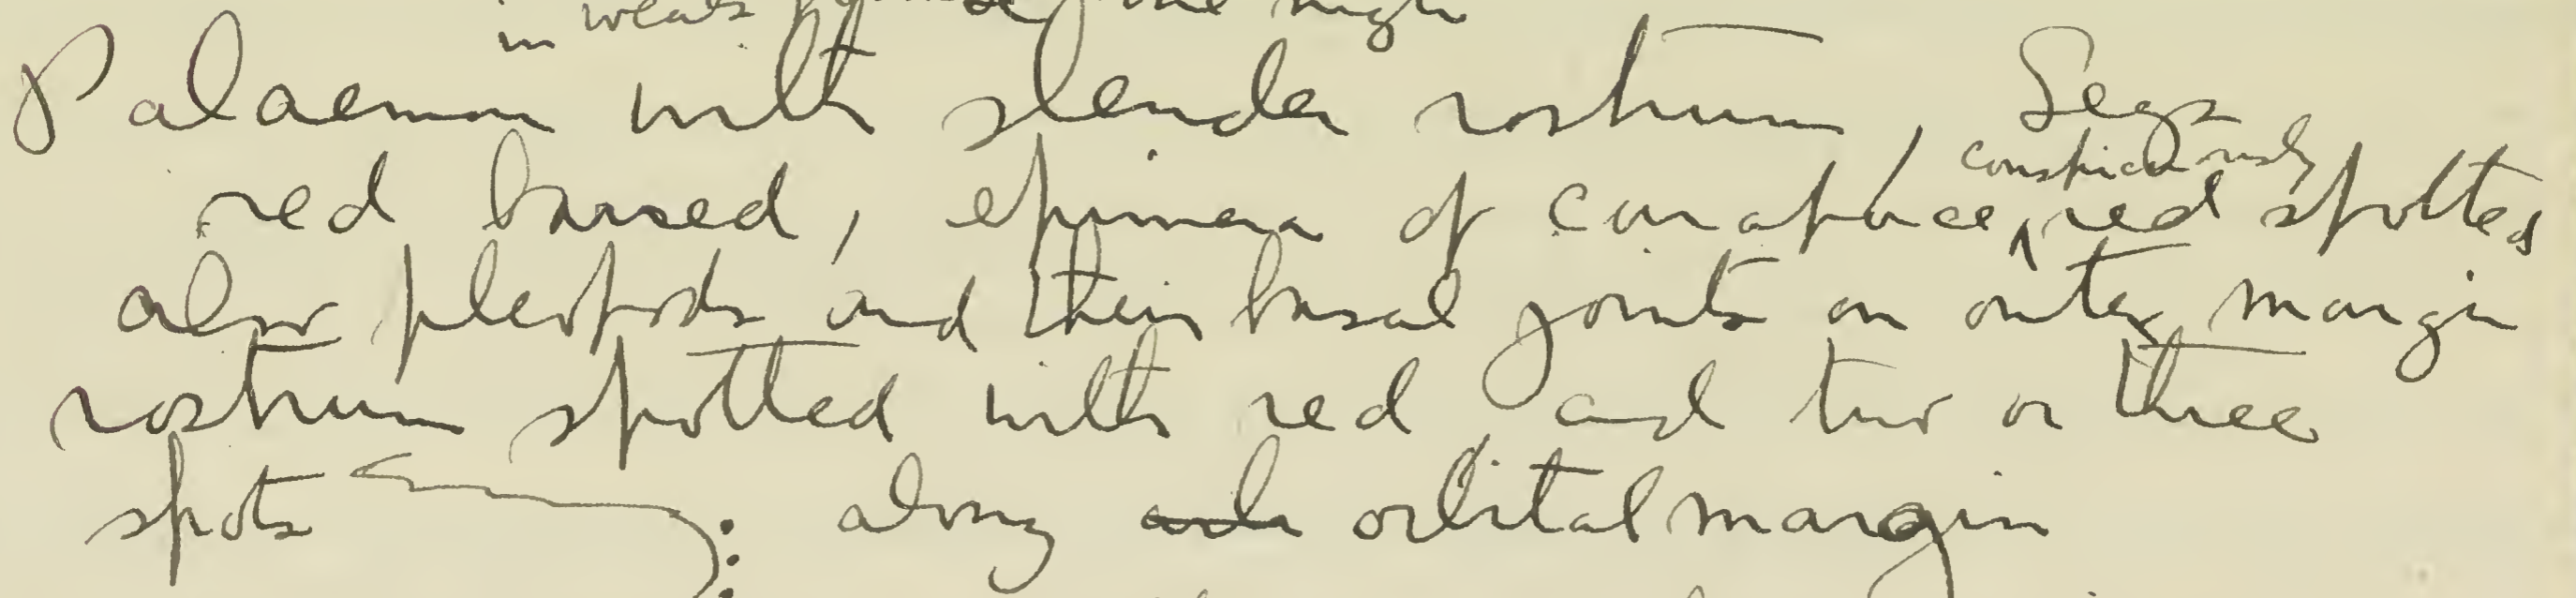 in
Palaemon with slender rostrum, Legs
red barred, epimera of carapace ^ conspicuously red spotted
also pleopods and their basal joints on outer margin
rostrum spotted with red and two or three
spots along orbital margin